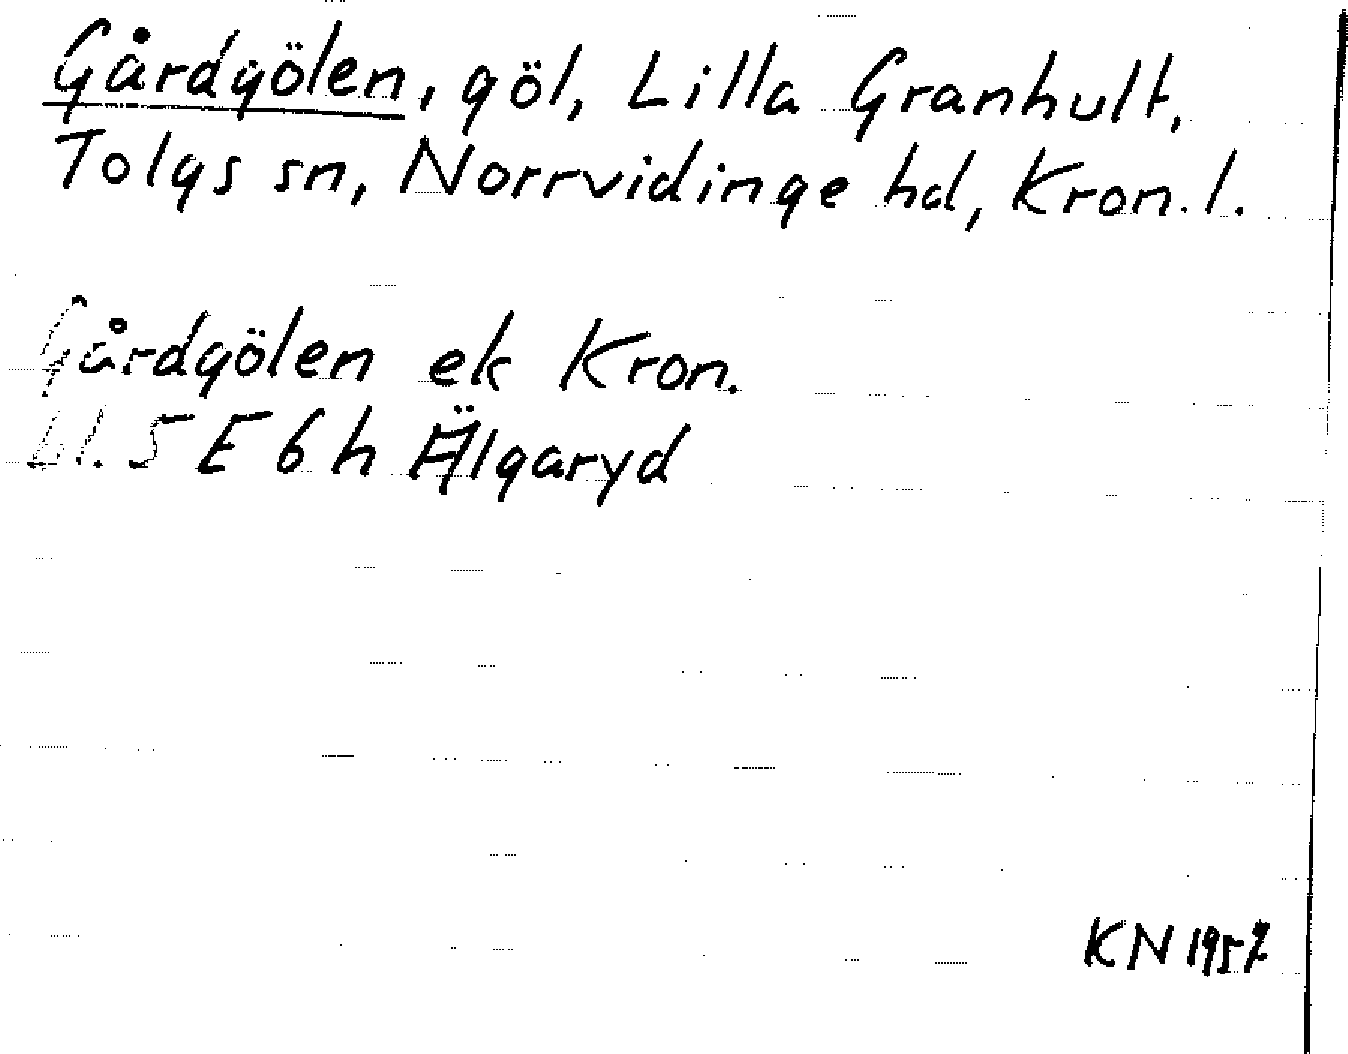 Gårdgölen, göl, Lilla Granhult,
Tolgs sn, Norrvidinge hd, Kron. l.
Gårdgölen ek Kron.
bl. 5 E 6 h Älgaryd
KN 1957